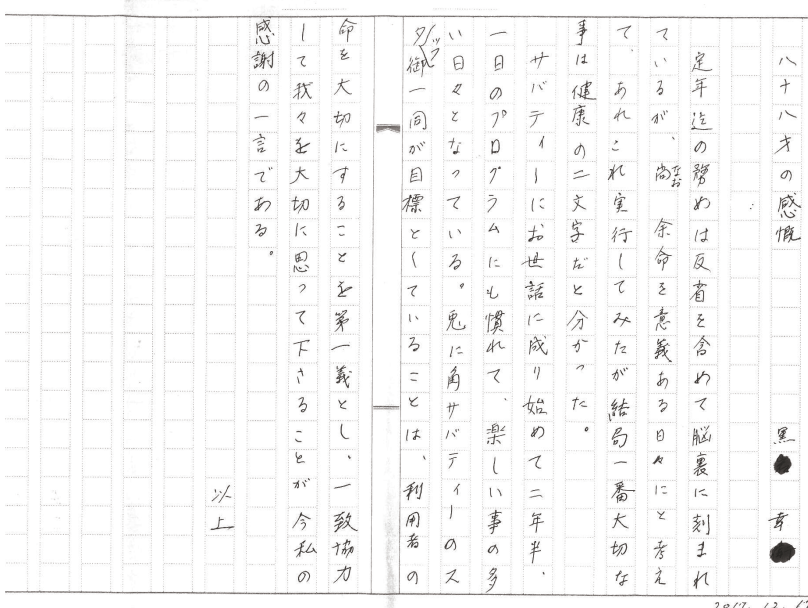 八十八才の感慨
黒●　幸●
定年迄の務めは反省を含めて脳裏に刻まれ
ているが、尚なお　余命を意義ある日々にと考え
て、あれこれ実行してみたが結局一番大切な
事は健康の二文字だと分かった。
サバティーにお世話に成り始めて二年半、
一日のプログラムにも慣れて、楽しい事の多
い日々となっている。兎に角サバティーのス
タッフ御一同が目標としていることは、利用者の
命を大切にすることを第一義とし、一致協力
して我々を大切に思って下さることが今私の
感謝の一言である。
以上
2017.12.17